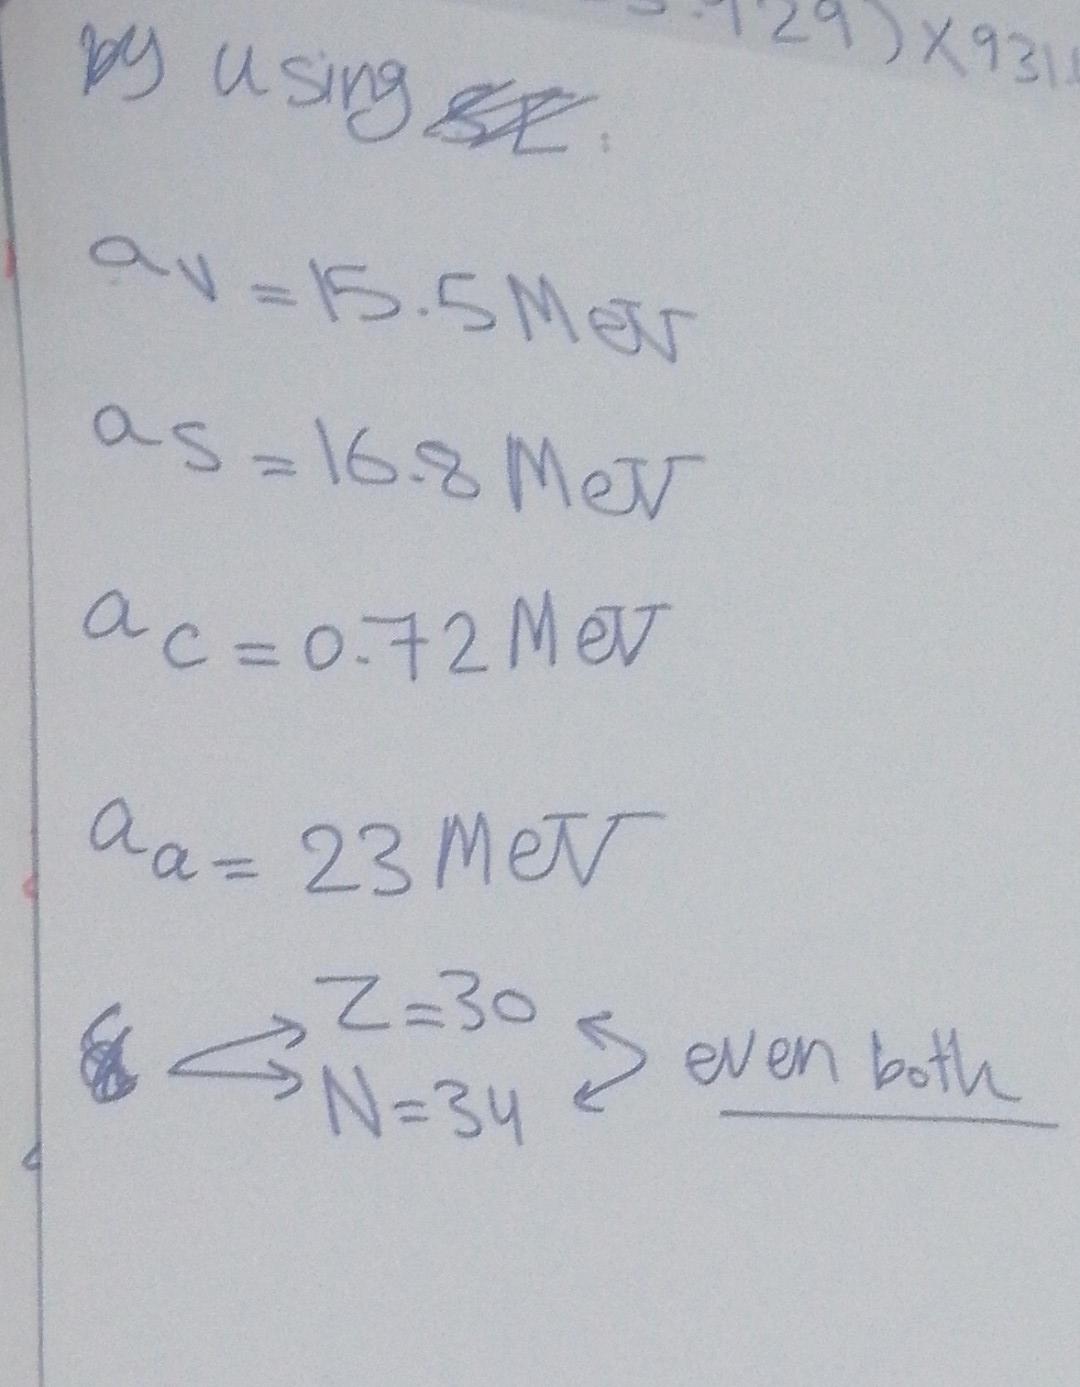 29) x 931
by using
av = 15.5 MeV
as = 16.8 MeV
ac = 0.72 MeV
aa = 23 MeV
Z = 30
N = 34
even both